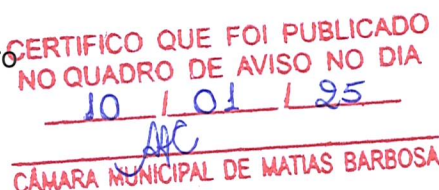 CERTIFICO QUE FOI PUBLICADO
NO QUADRO DE AVISO NO DIA
10 / 01 / 25
CÂMARA MUNICIPAL DE MATIAS BARBOSA